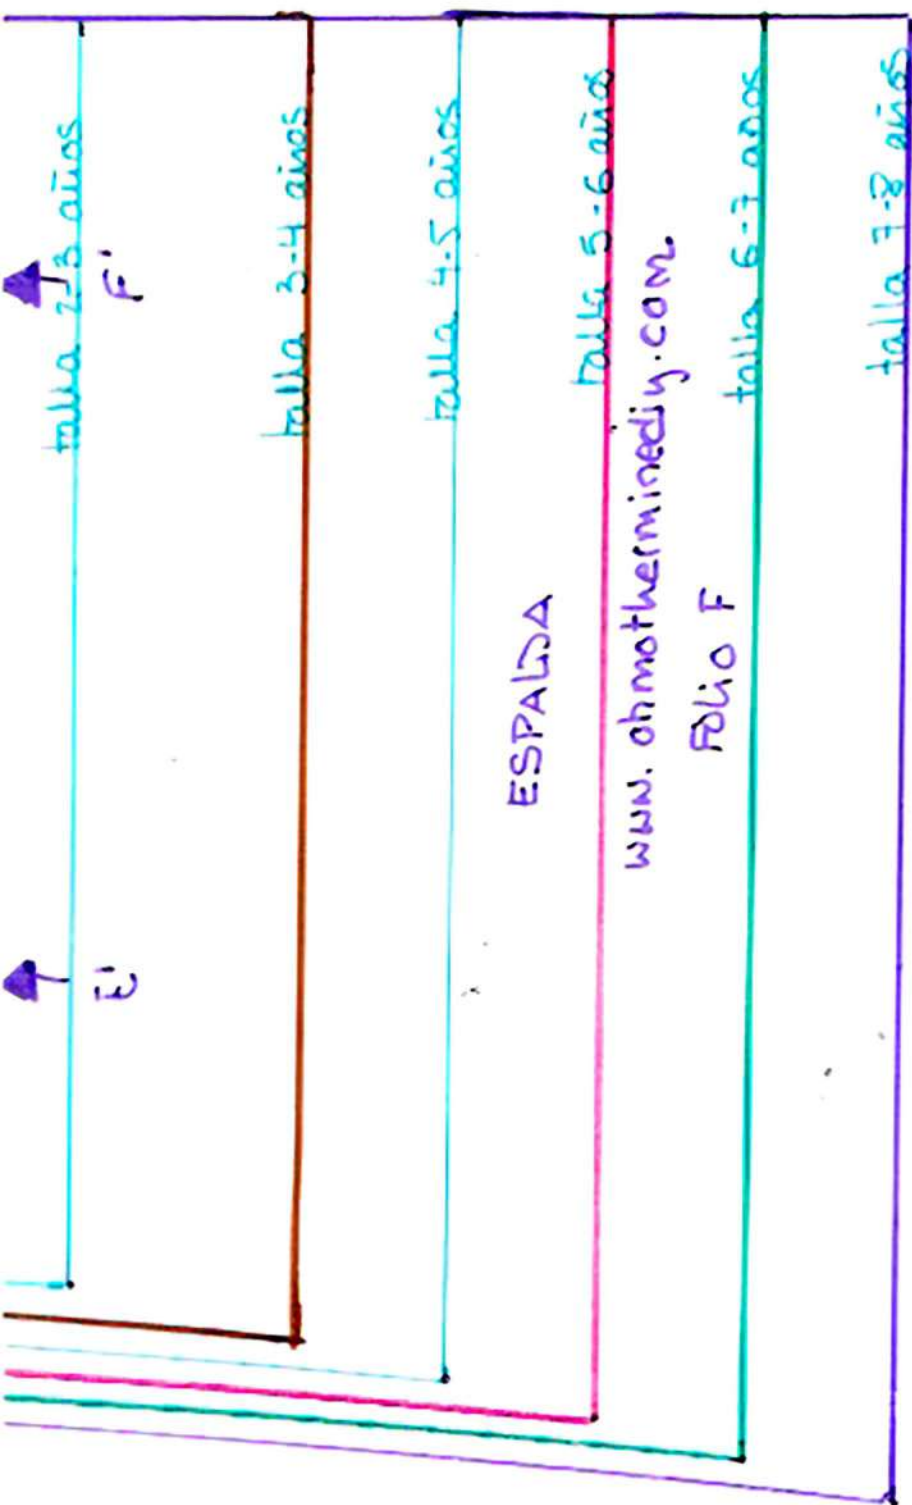 talla 2-3 años
F'
E'
talla 3-4 años
talla 4-5 años
ESPALDA
talla 5-6 años
www.ohmotherminediy.com
FOLIO F
talla 6-7 años
talla 7-8 años